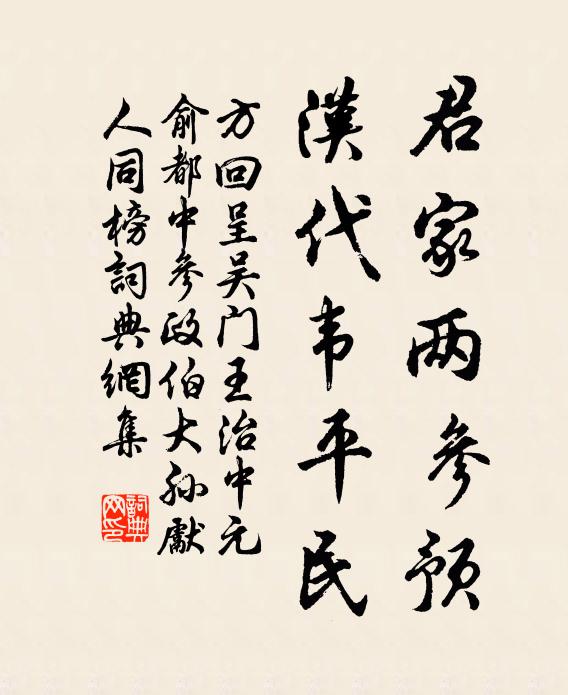 君家两參預
漢代韦平民
方回呈吴门王治中元
俞都中參政伯大孙獻
人同榜詞典網集
詞典网印